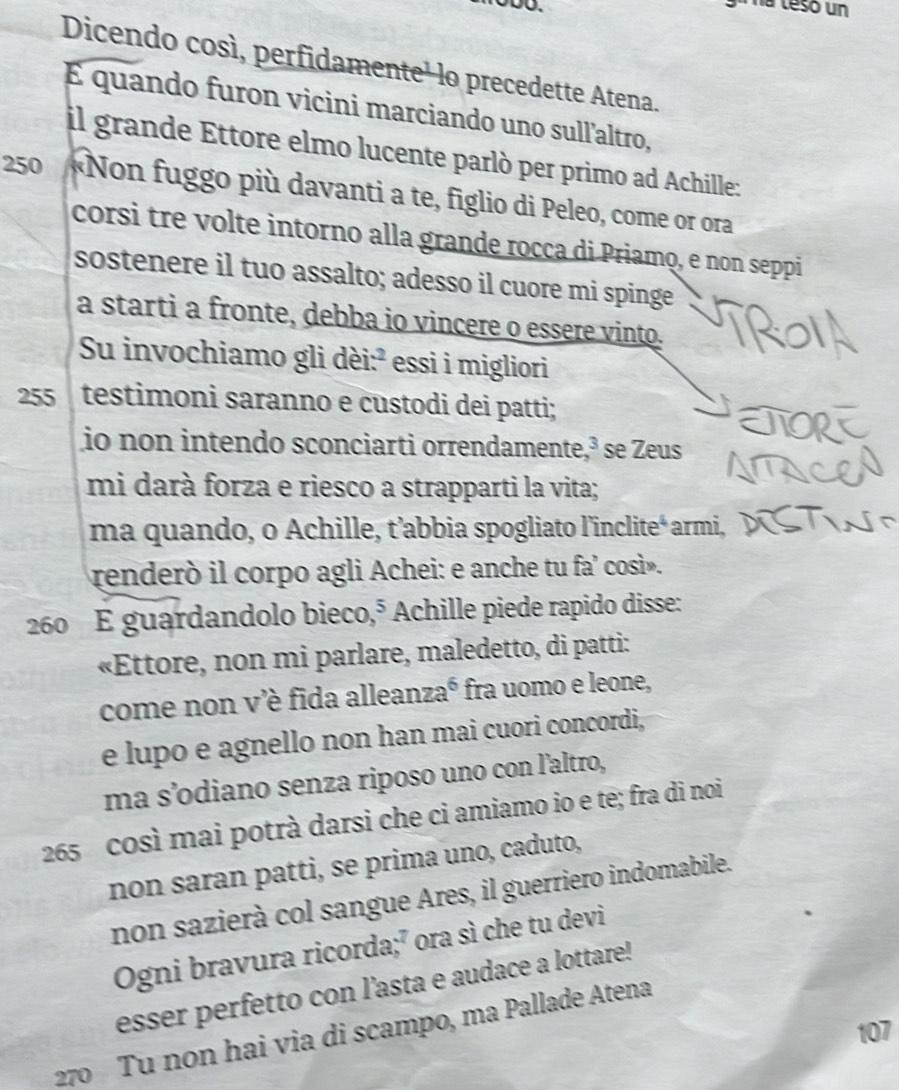 ha teso un
Dicendo così, perfidamente¹ lo precedette Atena.
E quando furon vicini marciando uno sull'altro,
il grande Ettore elmo lucente parlò per primo ad Achille:
250 «Non fuggo più davanti a te, figlio di Peleo, come or ora
corsi tre volte intorno alla grande rocca di Priamo, e non seppi
sostenere il tuo assalto; adesso il cuore mi spinge
TROIA
a starti a fronte, debba io vincere o essere vinto.
Su invochiamo gli dèi:² essi i migliori
255 testimoni saranno e custodi dei patti;
ETTORE
io non intendo sconciarti orrendamente,³ se Zeus
mi darà forza e riesco a strapparti la vita;
ma quando, o Achille, t'abbia spogliato l'inclite⁴ armi,
renderò il corpo agli Achei: e anche tu fa' così».
260 E guardandolo bieco,⁵ Achille piede rapido disse:
«Ettore, non mi parlare, maledetto, di patti:
come non v'è fida alleanza⁶ fra uomo e leone,
e lupo e agnello non han mai cuori concordi,
ma s'odiano senza riposo uno con l'altro,
265 così mai potrà darsi che ci amiamo io e te; fra di noi
non saran patti, se prima uno, caduto,
non sazierà col sangue Ares, il guerriero indomabile.
Ogni bravura ricorda;⁷ ora sì che tu devi
esser perfetto con l'asta e audace a lottare!
270 Tu non hai via di scampo, ma Pallade Atena
107